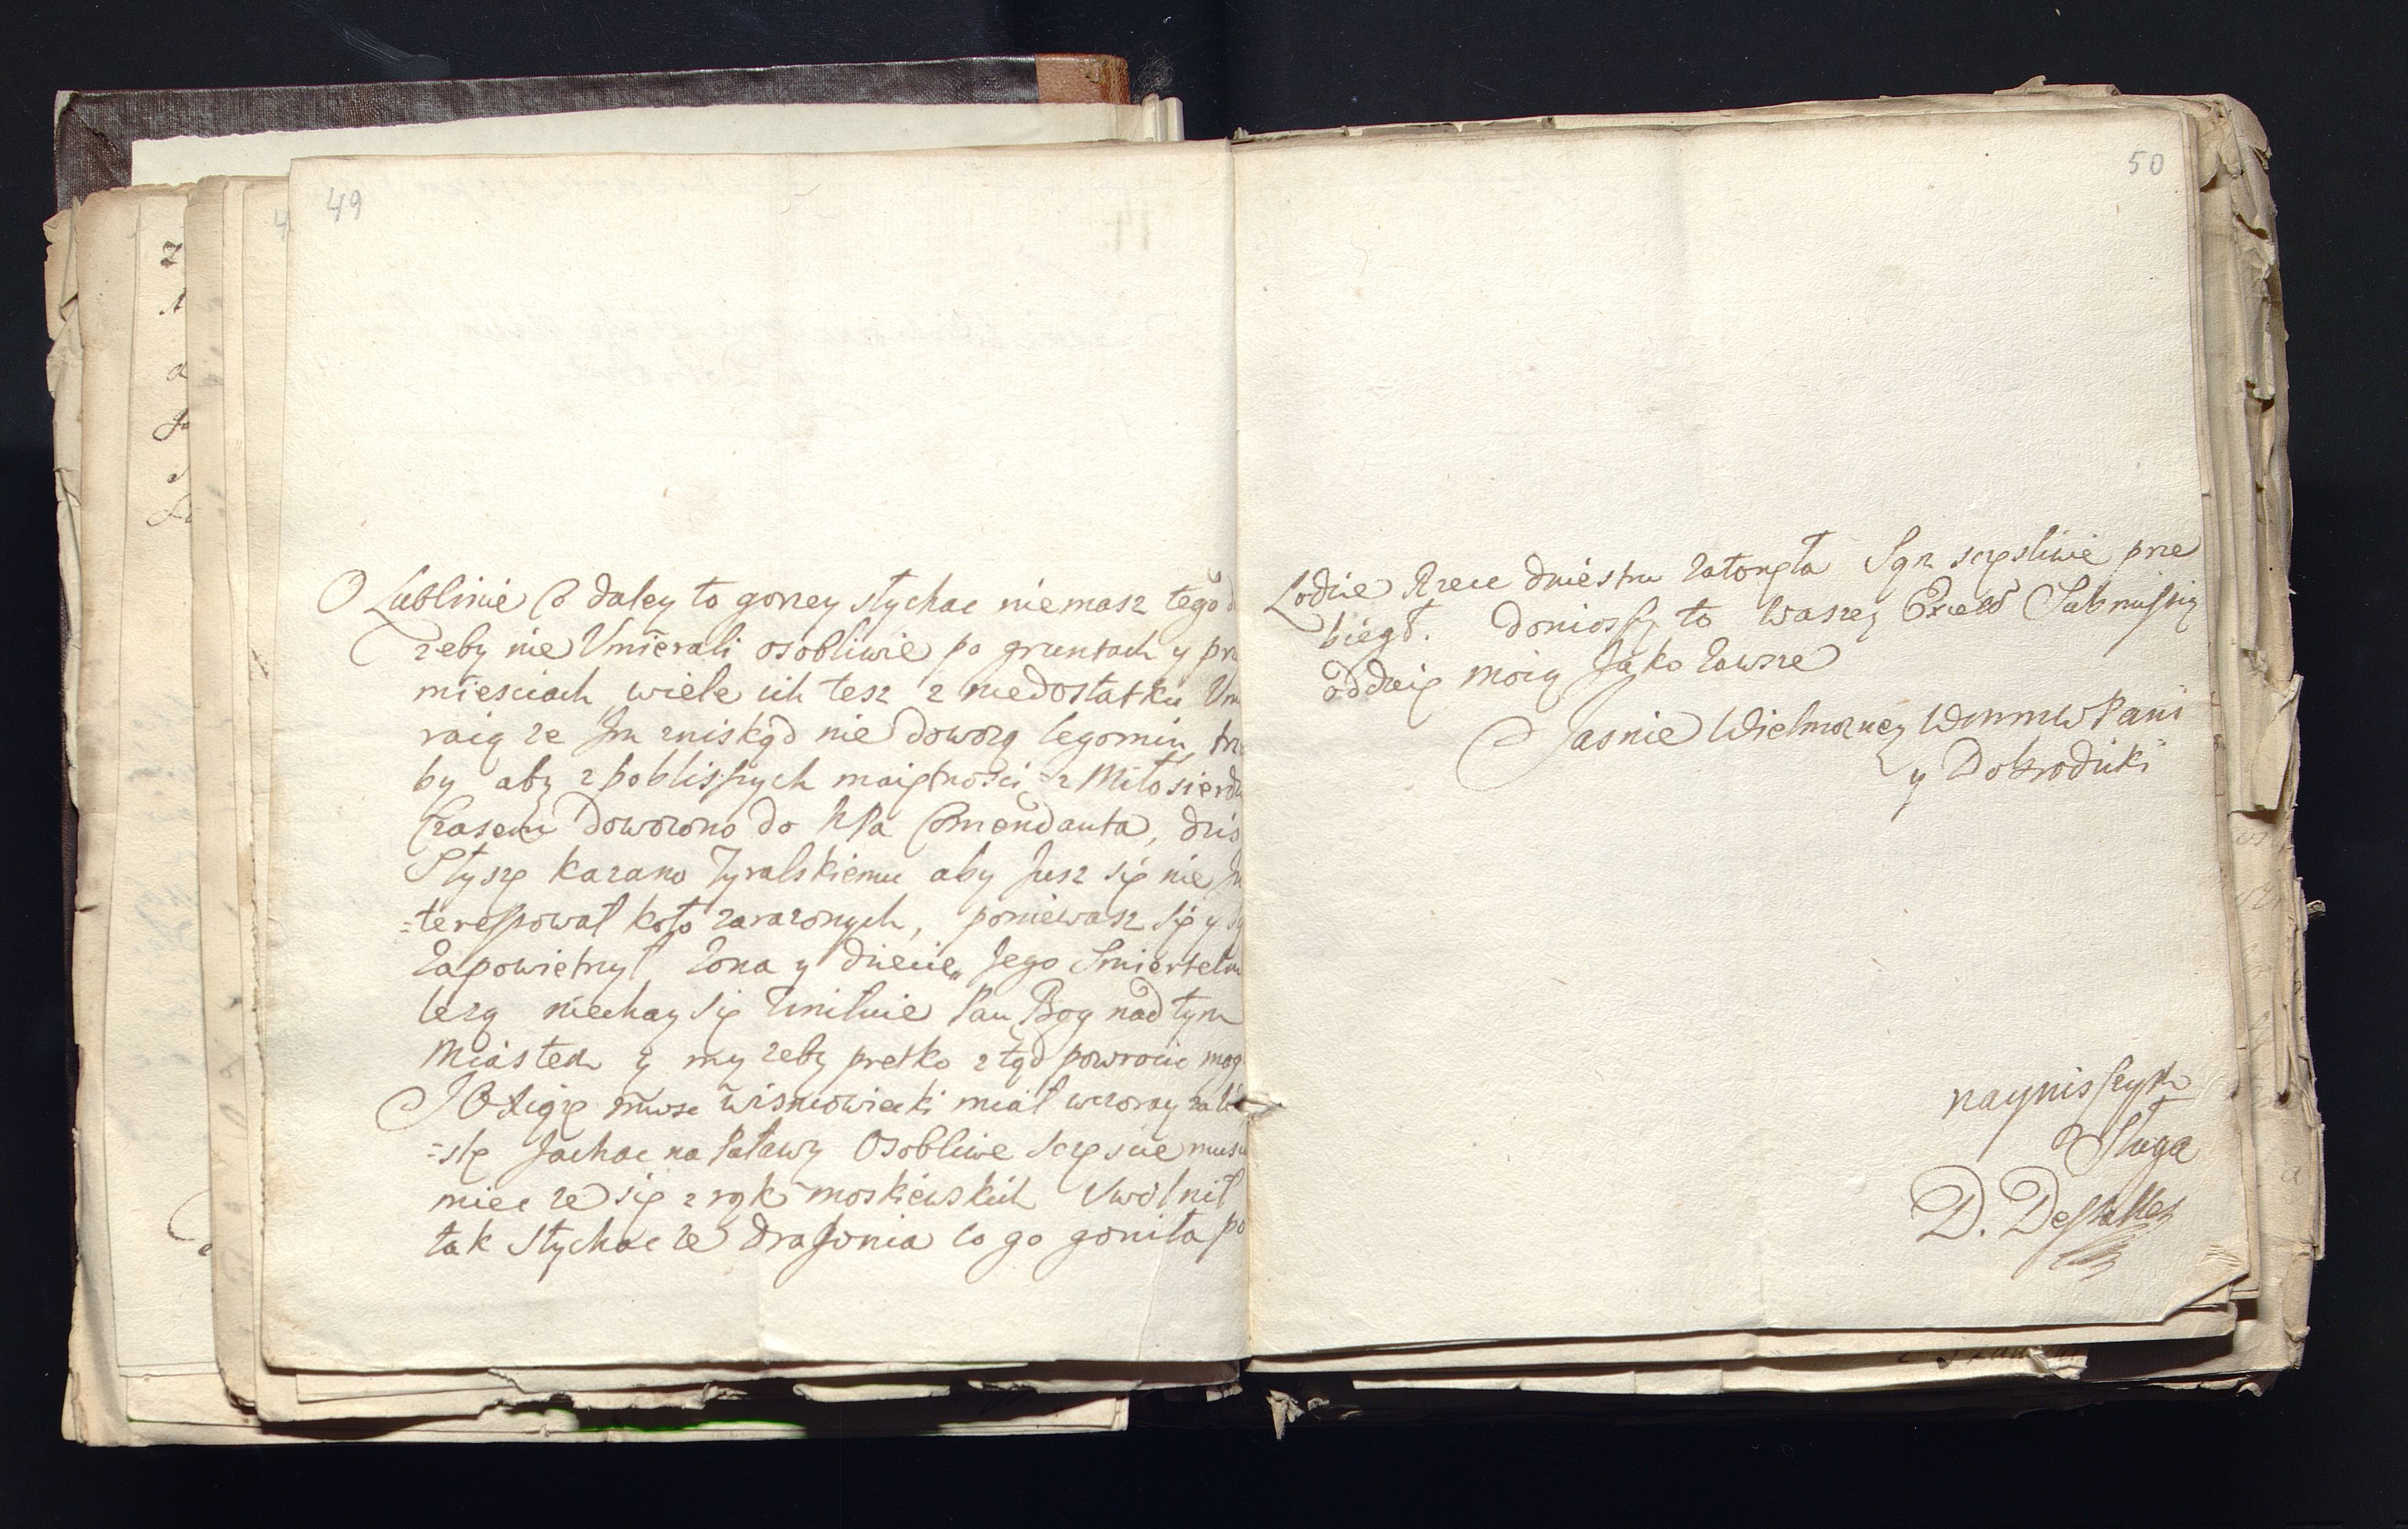 49
O Lublinie Co daley to gorzey słychac niemasz tego
zeby nie Vmierali osobliwie po gruntach y
miesciach wiele ich tesz z niedostatku
raią ze Jm zniskąd nie dowozą legomin,
by aby z poblisszych maiętnosci z Miłosierd
Czasem dowozono do JPa Comendanta, dzis
Słyszę kazano Zyralskiemu aby Jusz się nie
=teressował koło zarazonych, poniewasz się y
Zapowietrzył, Zona y dziecie Jego Smiertelni
lezą niechay się Zmiłuie Pan Bog nad tym
Miastem y my zeby pretko ztąd powrocic mog
Xiąze wisniowiecki miał wczoray
=się Jachac na Puławy Osobliwe sczęscie musi
miec ze się z rąk moskiewskich Vwolnił
tak słychac ze dragonia co go goniła po
50
Lodzie Rzece dniestru zatonęła Sąm sczęsliwie prze
biegł. doniosszy to Waszey Submissią
oddaię moią Jako Zawsze
Jasnie Wielmozney WMMW Pani
y Dobrodziki
naynisszym
Sługa
D.